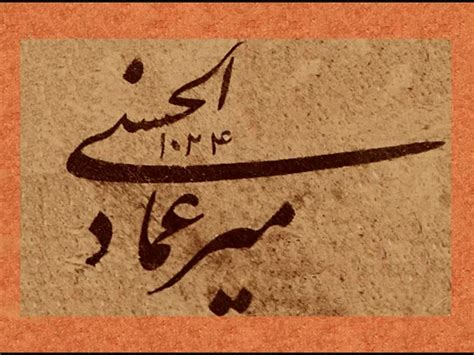 الحسنی
۱۰۲۴
میر عماد